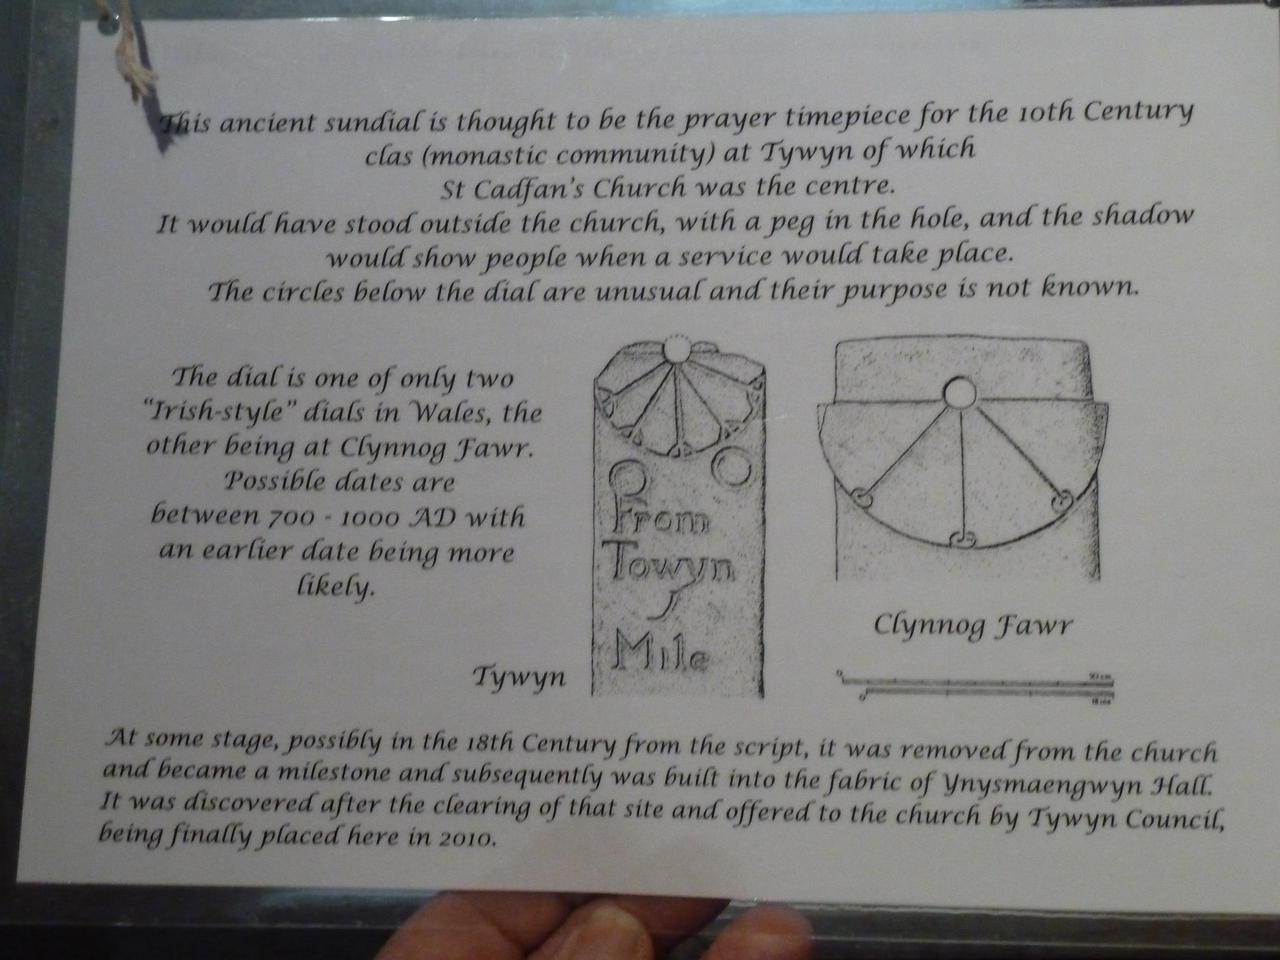 This ancient sundial is thought to be the prayer timepiece for the 10th Century
clas (monastic community) at Tywyn of which
St Cadfan's Church was the centre.
It would have stood outside the church, with a peg in the hole, and the shadow
would show people when a service would take place.
The circles below the dial are unusual and their purpose is not known.
The dial is one of only two
"Irish-style" dials in Wales, the
other being at Clynnog Fawr.
Possible dates are
between 700 - 1000 AD with
an earlier date being more
likely.
From
Towyn
Mile
Tywyn
Clynnog Fawr
At some stage, possibly in the 18th Century from the script, it was removed from the church
and became a milestone and subsequently was built into the fabric of Ynysmaengwyn Hall.
It was discovered after the clearing of that site and offered to the church by Tywyn Council,
being finally placed here in 2010.